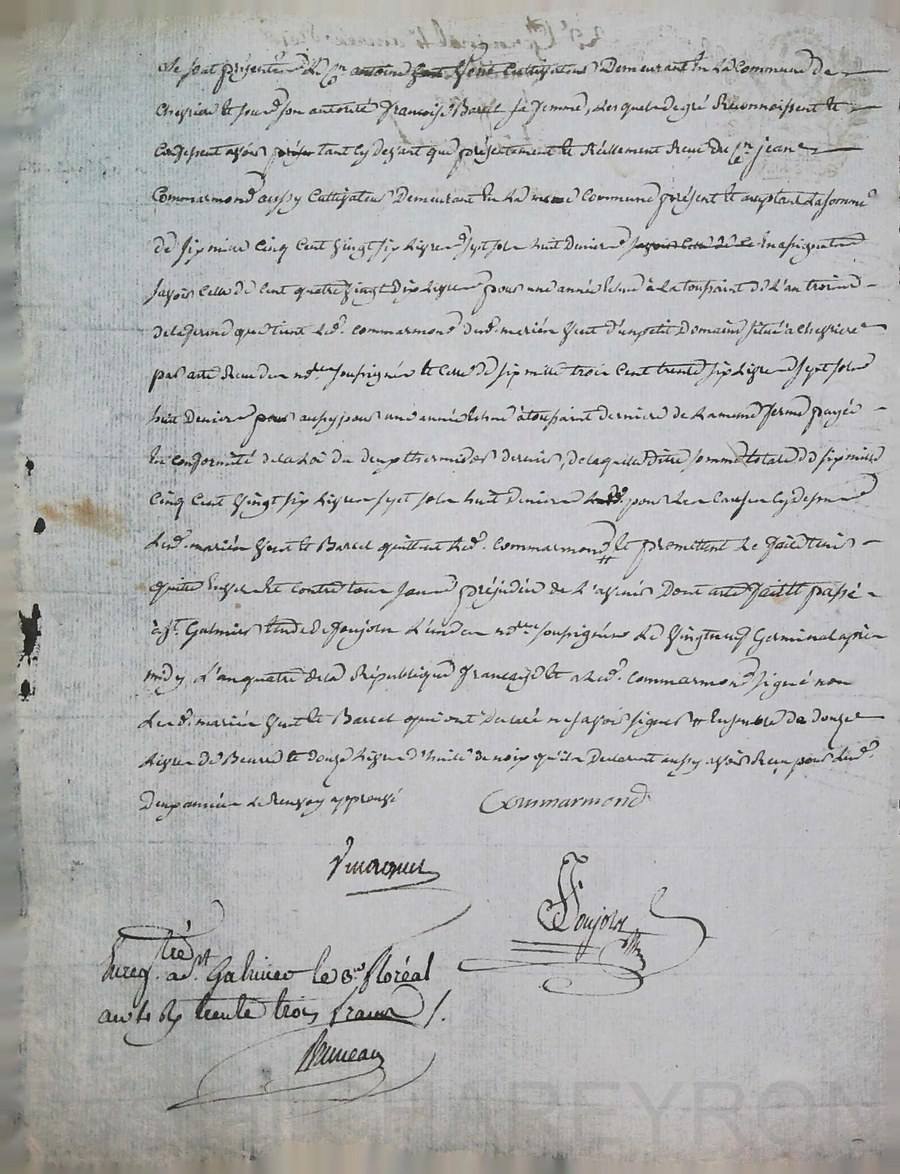 Se sont présentés le Cn antoine Cultivateur Demeurant en La Commune de
Chevriere et sous son autorité francoise Barcel sa femme, Lesquels de gré Reconnoissent et
Confessent avoir tant cy devant que présentement et Réellement Recu du Cn jean
Commarmond aussy Cultivateur Demeurant en La même Commune présent et acceptant La somme
de six mille Cinq Cent vingt six Livres sept sols huit Deniers en assignats
Savoir Celle de Cent quatre vingt Dix Livres pour une année échue à La toussaint de L'an trois
de la ferme que tient Led. Commarmond dud. mariés d'un petit Domaine situé a Chevrieres
par acte Recu du nre soussigné et Celle de six mille trois Cent trente six Livres sept sols
huit Deniers aussy pour une année échue à toussaint derniere de La meme ferme payée
En conformité de la Loi du deux thermidor dernier, de laquelle Ditte somme totale de six mille
Cinq Cent vingt six Livres sept sols huit Deniers pour Les causes cy dessus
Lesd. mariés et Barcel quittent Led. Commarmond et promettent Le faire tenir
quitte Envers et contre tous sans préjudice de L'avenir Dont acte fait et passé
à St. Galmier étude de Goujon L'un des nres soussignés Le vingt neuf Germinal après
midy, L'an quatre de la République française et a Led. Commarmond signé non
Lesd. mariés et Barcel qui ont Déclaré ne savoir signer Ensemble de douze
Livres de Beurre et douze Livres d'huile de noix qu'ils Declarent aussy avoir Reçu pour Lesd.
Deux années Le Renvoy approuvé
Commarmond
Goujon
Enregtré a St. Galmier le 8 floréal
an 4 trente trois francs
Bruneau
29 Germinal
CHAREYRON